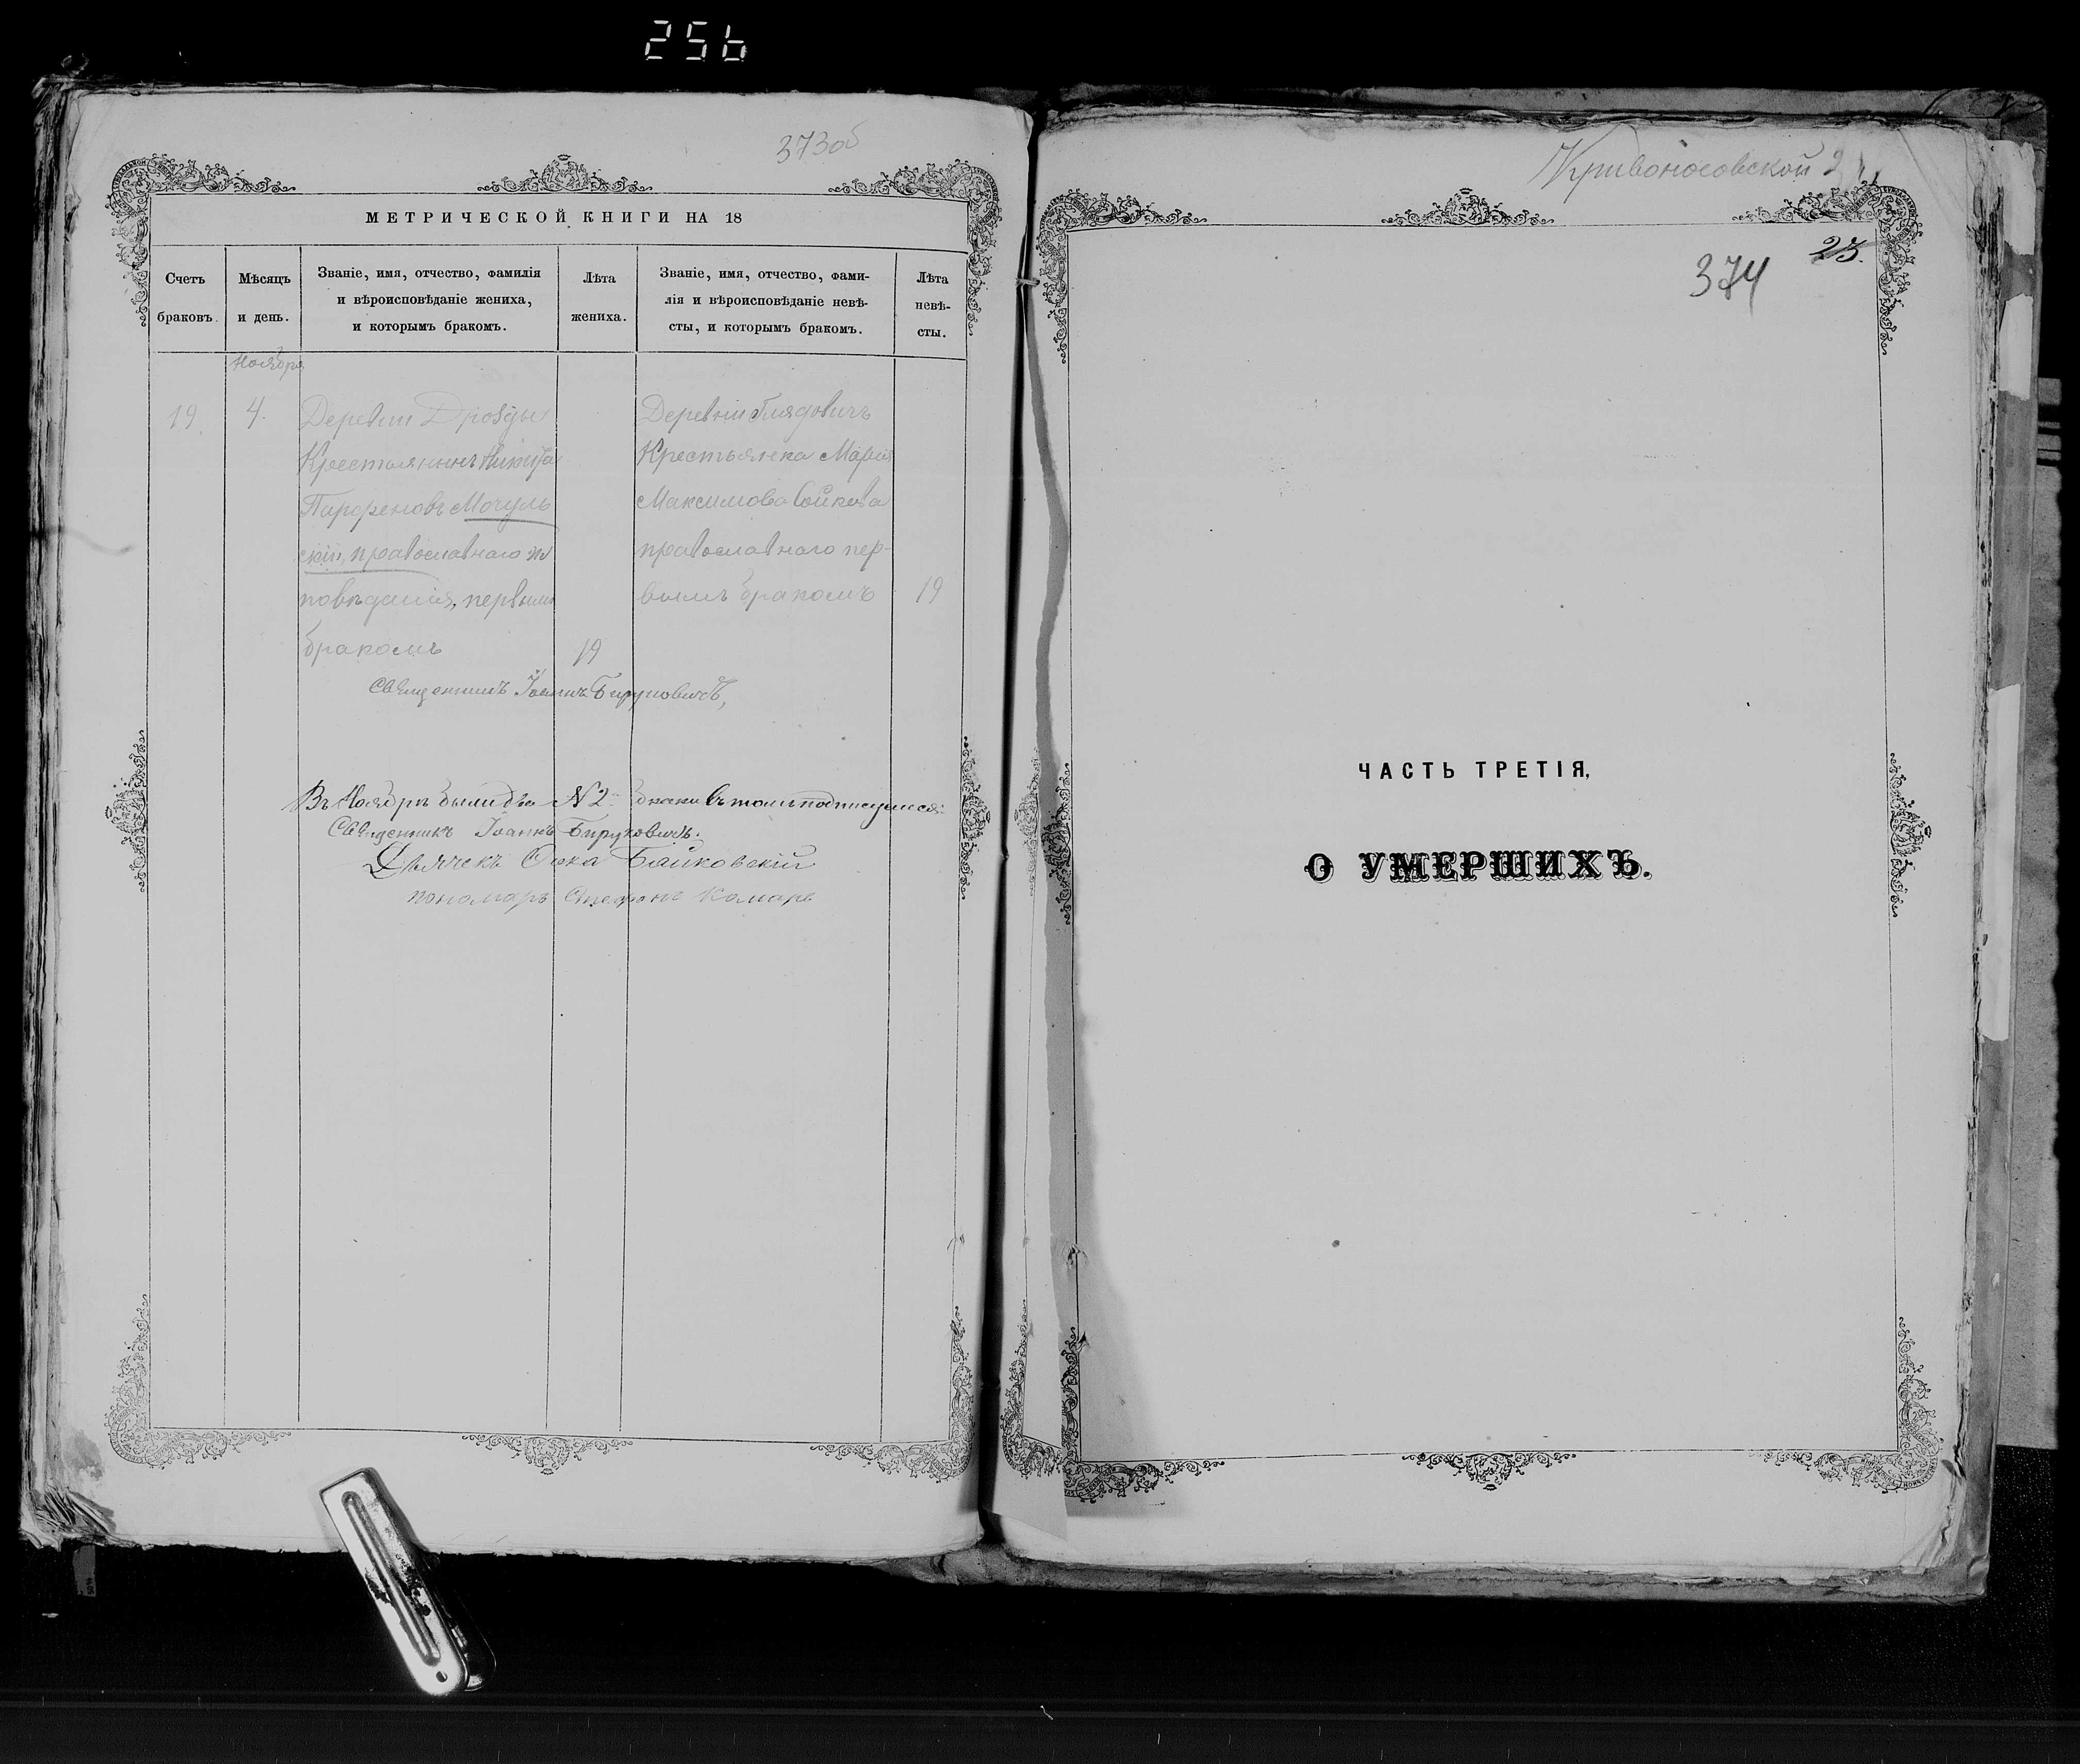 256
373об
МЕТРИЧЕСКОЙ КНИГИ НА 18
Счетъ браковъ.
Мѣсяцъ и день.
Званіе, имя, отчество, фамилія
и вѣроисповѣданіе жениха,
и которымъ бракомъ.
Лѣта жениха.
Званіе, имя, отчество, фами-
лія и вѣроисповѣданіе невѣ-
сты, и которымъ бракомъ.
Лѣта невѣ-
сты.
Ноября
19
4.
Деревни Дрозды
Крестьянинъ Никита
Парфеновъ Мочуль
скій, православнаго ис
повѣданія, первымъ
бракомъ
19
Деревни
Крестьянка Марія
Максимова
православнаго пер-
вымъ бракомъ
19
Священникъ Іоаннъ Бируковичъ,
Въ Ноябрѣ были два № 2 браки въ томъ подписуемся:
Священникъ Іоаннъ Бируковичъ.
Дьячекъ Ѳока Байковскій
пономарь Стефанъ Комаръ
Кривоносовской
23.
374
ЧАСТЬ ТРЕТІЯ,
О УМЕРШИХЪ.